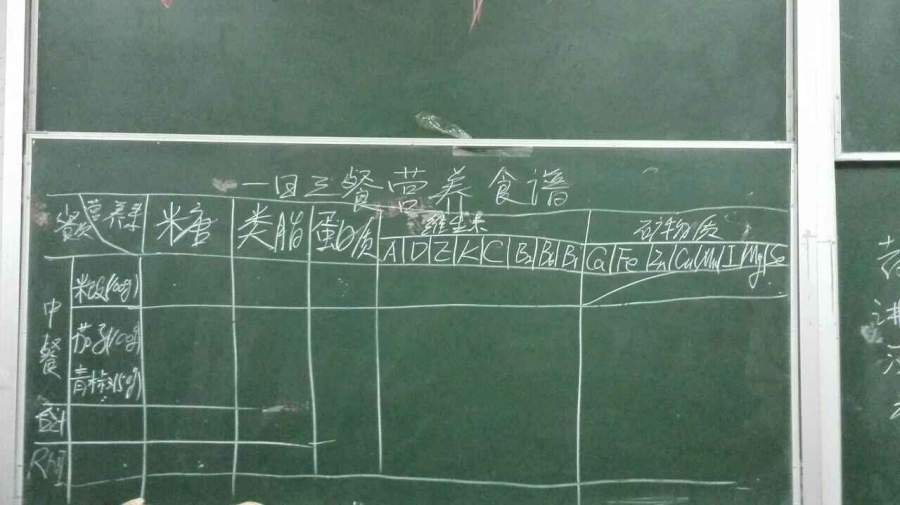 一日三餐营养食谱
餐类 营养素 米唐 类脂 蛋白质 维生素 矿物质
A D E K C B2 B6 B1 Ca Fe Zn Cu Mn I Mg Se
中餐 米饭(100g)
茄子(100g)
青椒(50g)
合计